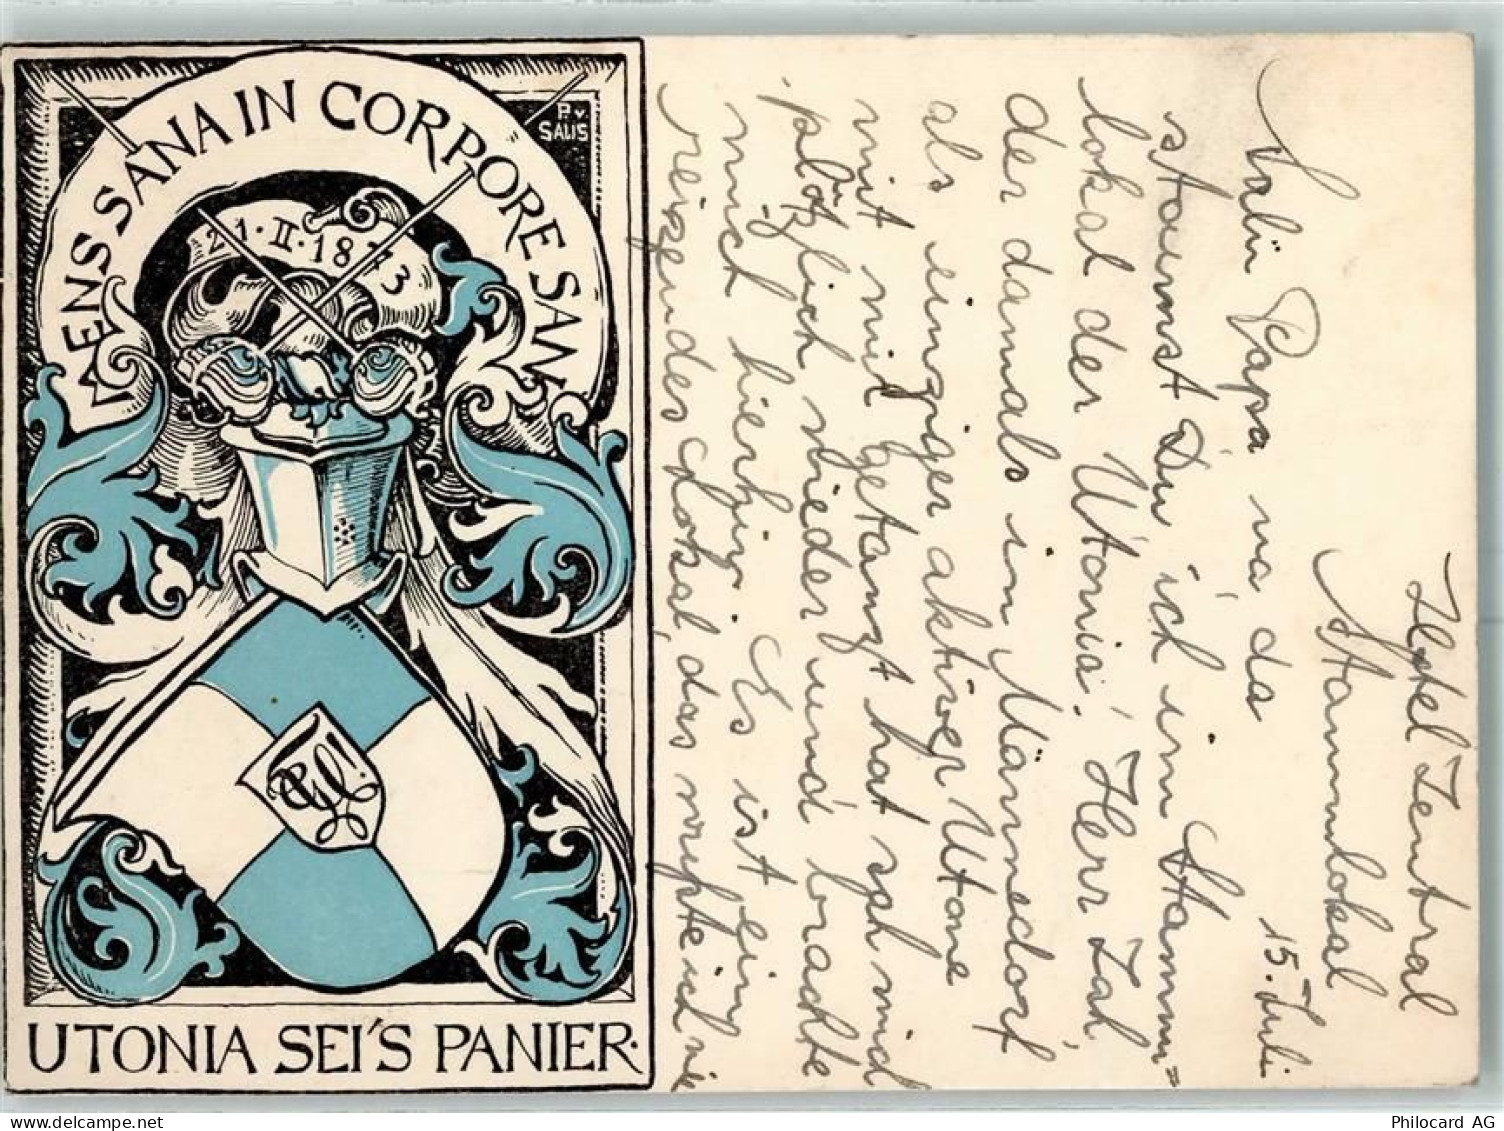 MENS SANA IN CORPORE SANO
P. v.
SALIS
21·II·1873
UTONIA SEI'S PANIER·
Hotel Zentral
Stammlokal
15. Juli
Salü Papa nö da
staunst Du ich im Stamm=
lokal der Utonia! Herr Zah,
der damals in Männedorf
als einziger aktiver Utone
mit mir getanzt hat sah mich
plötzlich wieder und brachte
mich hierhin. Es ist ein
reizendes Lokal, das wusste ich nie
Philocard AG